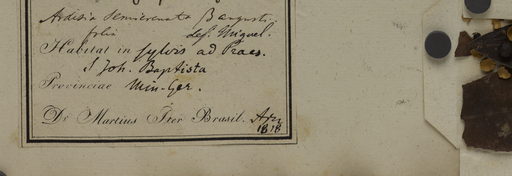 Ardisia semicrenata B angusti-
folia Def. Miquel.
Habitat in sylvis ad Praes.
S Joh. Baptista
Provinciae Min-Ger.
Dr Martius Iter Brasil. Apr
1818